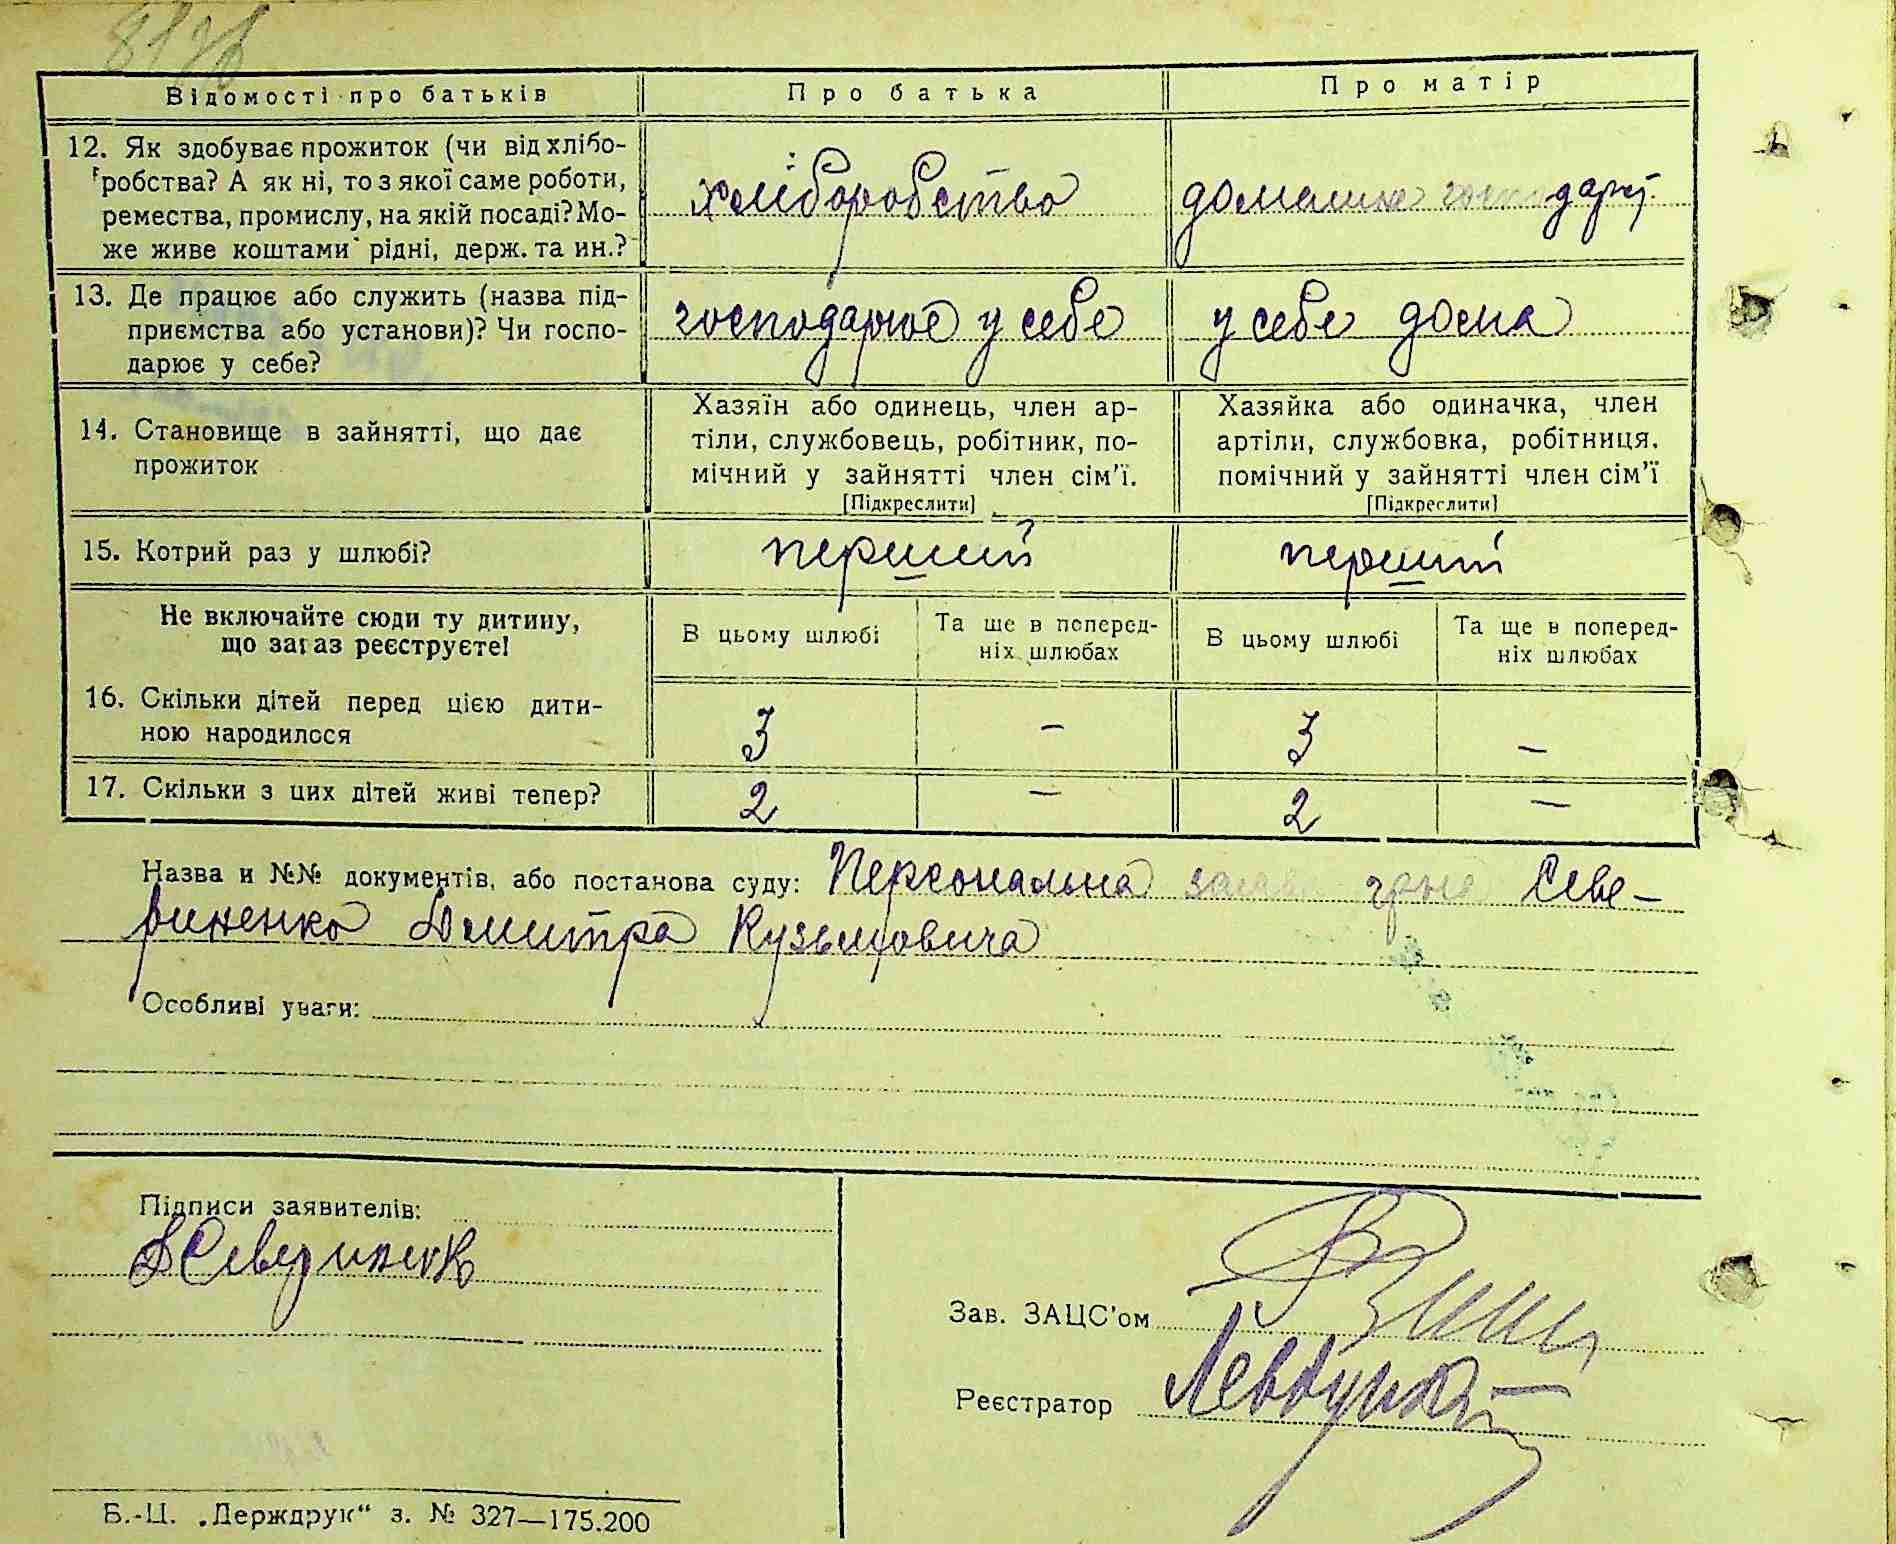 Відомості про батьків
Про батька
Про матір
12. Як здобуває прожиток (чи від хлібо-
робства? А як ні, то з якої саме роботи,
ремества, промислу, на якій посаді? Мо-
же живе коштами рідні, держ. та ин.?
хліборобство
домашнє господар.
13. Де працює або служить (назва під-
приємства або установи)? Чи госпо-
дарює у себе?
господарює у себе
у себе дома
14. Становище в зайнятті, що дає
прожиток
Хазяїн або одинець, член ар-
тіли, службовець, робітник, по-
мічний у зайнятті член сім'ї.
[Підкреслити]
Хазяйка або одиначка, член
артіли, службовка, робітниця,
помічний у зайнятті член сім'ї
[Підкреслити]
15. Котрий раз у шлюбі?
перший
перший
Не включайте сюди ту дитину,
що зараз реєструєте!
В цьому шлюбі
Та ще в поперед-
ніх шлюбах
В цьому шлюбі
Та ще в поперед-
ніх шлюбах
16. Скільки дітей перед цією дити-
ною народилося
3 – 3 –
17. Скільки з цих дітей живі тепер?
2 – 2 –
Назва и №№ документів, або постанова суду: Персональна заява гр-на Севе-
риненко Дмитра Кузьмовича
Особливі уваги:
Підписи заявителів:
Д Севериненко
Зав. ЗАЦС'ом
Реєстратор
Б.-Ц. „Держдрук“ з. № 327—175.200